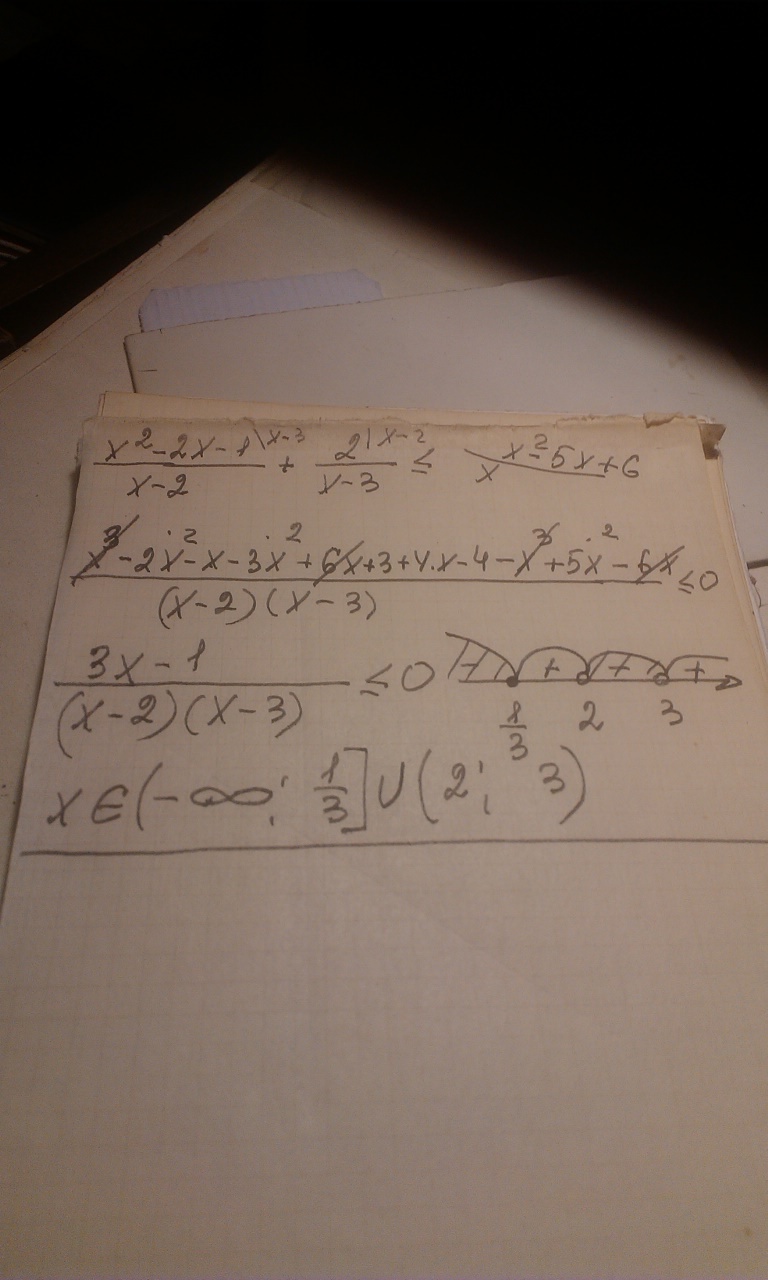 x²-2x-1\x-3 / x-2 + 2|x-2 / x-3 ≤ x x²-5x+6
x³-2x²-x-3x²+6x+3+4.x-4-x³+5x²-6x / (x-2)(x-3) ≤0
3x-1 / (x-2)(x-3) ≤0 + + + 1/3 2 3
x∈(-∞; 1/3]∪(2; 3)